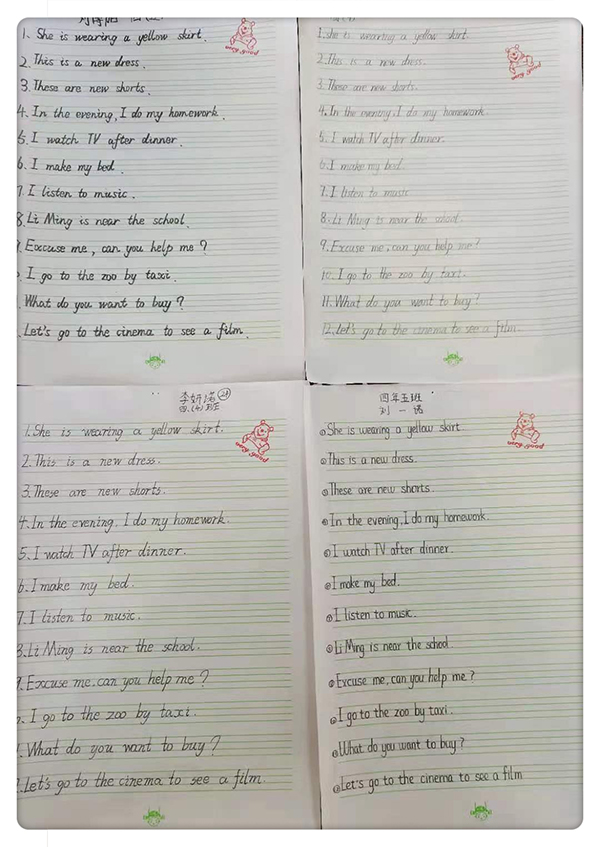 1. She is wearing a yellow skirt.
very good
2. This is a new dress.
3. These are new shorts.
4. In the evening, I do my homework.
5. I watch TV after dinner.
6. I make my bed.
7. I listen to music.
8. Li Ming is near the school.
9. Excuse me, can you help me?
I go to the zoo by taxi.
What do you want to buy?
Let's go to the cinema to see a film.
1. She is wearing a yellow skirt.
very good
2. This is a new dress.
3. These are new shorts.
4. In the evening, I do my homework.
5. I watch TV after dinner.
6. I make my bed.
7. I listen to music
8. Li Ming is near the school.
9. Excuse me, can you help me?
10. I go to the zoo by taxi.
11. What do you want to buy?
12. Let's go to the cinema to see a film.
李妍诺 24
四.(4)班
1. She is wearing a yellow skirt.
very good
2. This is a new dress.
3. These are new shorts.
4. In the evening, I do my homework.
5. I watch TV after dinner.
6. I make my bed.
7. I listen to music.
8. Li Ming is near the school.
9. Excuse me, can you help me?
I go to the zoo by taxi.
What do you want to buy?
Let's go to the cinema to see a film.
四年五班
刘一诺
① She is wearing a yellow skirt.
very good
② This is a new dress.
③ These are new shorts.
④ In the evening, I do my homework.
⑤ I watch TV after dinner.
⑥ I make my bed.
⑦ I listen to music.
⑧ Li Ming is near the school.
⑨ Excuse me, can you help me?
⑩ I go to the zoo by taxi.
⑪ What do you want to buy?
⑫ Let's go to the cinema to see a film